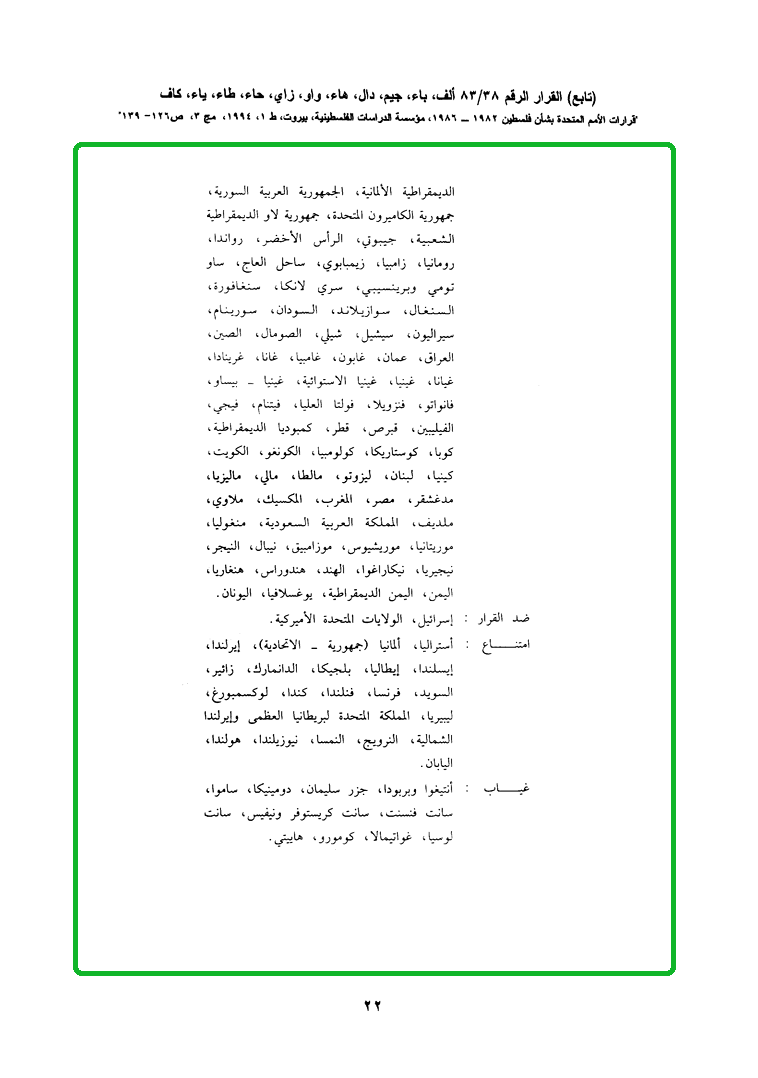 (تابع) القرار الرقم ٨٣/٣٨ ألف، باء، جيم، دال، هاء، واو، زاي، حاء، طاء، ياء، كاف
"قرارات الأمم المتحدة بشأن فلسطين ١٩٨٢ ــ ١٩٨٦، مؤسسة الدراسات الفلسطينية، بيروت، ط ١، ١٩٩٤، مج ٣، ص١٢٦- ١٣٩"
الديمقراطية الألمانية، الجمهورية العربية السورية،
جمهورية الكاميرون المتحدة، جمهورية لاو الديمقراطية
الشعبية، جيبوتي، الرأس الأخضر، رواندا،
رومانيا، زامبيا، زيمبابوي، ساحل العاج، ساو
تومي وبرينسيبي، سري لانكا، سنغافورة،
السنغال، سوازيلاند، السودان، سورينام،
سيراليون، سيشيل، شيلي، الصومال، الصين،
العراق، عمان، غابون، غامبيا، غانا، غرينادا،
غيانا، غينيا، غينيا الاستوائية، غينيا ـ بيساو،
فانواتو، فنزويلا، فولتا العليا، فيتنام، فيجي،
الفيليبين، قبرص، قطر، كمبوديا الديمقراطية،
كوبا، كوستاريكا، كولومبيا، الكونغو، الكويت،
كينيا، لبنان، ليزوتو، مالطا، مالي، ماليزيا،
مدغشقر، مصر، المغرب، المكسيك، ملاوي،
ملديف، المملكة العربية السعودية، منغوليا،
موريتانيا، موريشيوس، موزامبيق، نيبال، النيجر،
نيجيريا، نيكاراغوا، الهند، هندوراس، هنغاريا،
اليمن، اليمن الديمقراطية، يوغسلافيا، اليونان.
ضد القرار : إسرائيل، الولايات المتحدة الأميركية.
امتنـــاع : أستراليا، ألمانيا (جمهورية ـ الاتحادية)، إيرلندا،
إيسلندا، إيطاليا، بلجيكا، الدانمارك، زائير،
السويد، فرنسا، فنلندا، كندا، لوكسمبورغ،
ليبيريا، المملكة المتحدة لبريطانيا العظمى وإيرلندا
الشمالية، النرويج، النمسا، نيوزيلندا، هولندا،
اليابان.
غيـــاب : أنتيغوا وبربودا، جزر سليمان، دومينيكا، ساموا،
سانت فنسنت، سانت كريستوفر ونيفيس، سانت
لوسيا، غواتيمالا، كومورو، هاييتي.
٢٢